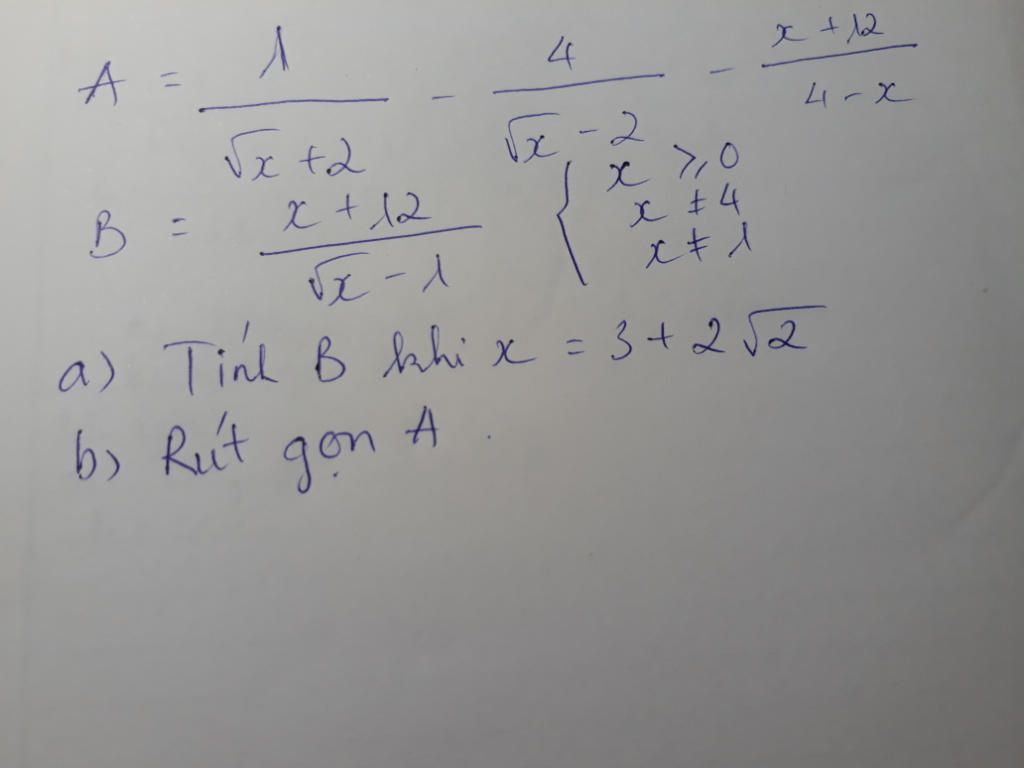 A = 1/(√x + 2) - 4/(√x - 2) - (x + 12)/(4 - x)
B = (x + 12)/(√x - 1) { x ⩾ 0
x ≠ 4
x ≠ 1
a) Tính B khi x = 3 + 2√2
b) Rút gọn A.